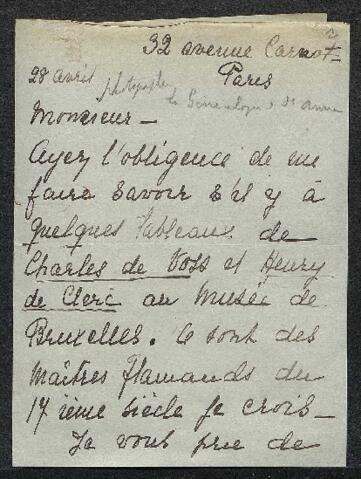 32 avenue Carnot
Paris
28 avril
photographie
la Généalogie Ste Anne
Monsieur –
Ayez l'obligence de me
faire savoir s'il y à
quelques tableaux de
Charles de Voss et Henry
de Clerc au Musée de
Bruxelles. Ce sont des
Maîtres Flamands du
17 ième siècle je crois –
Je vous prie de